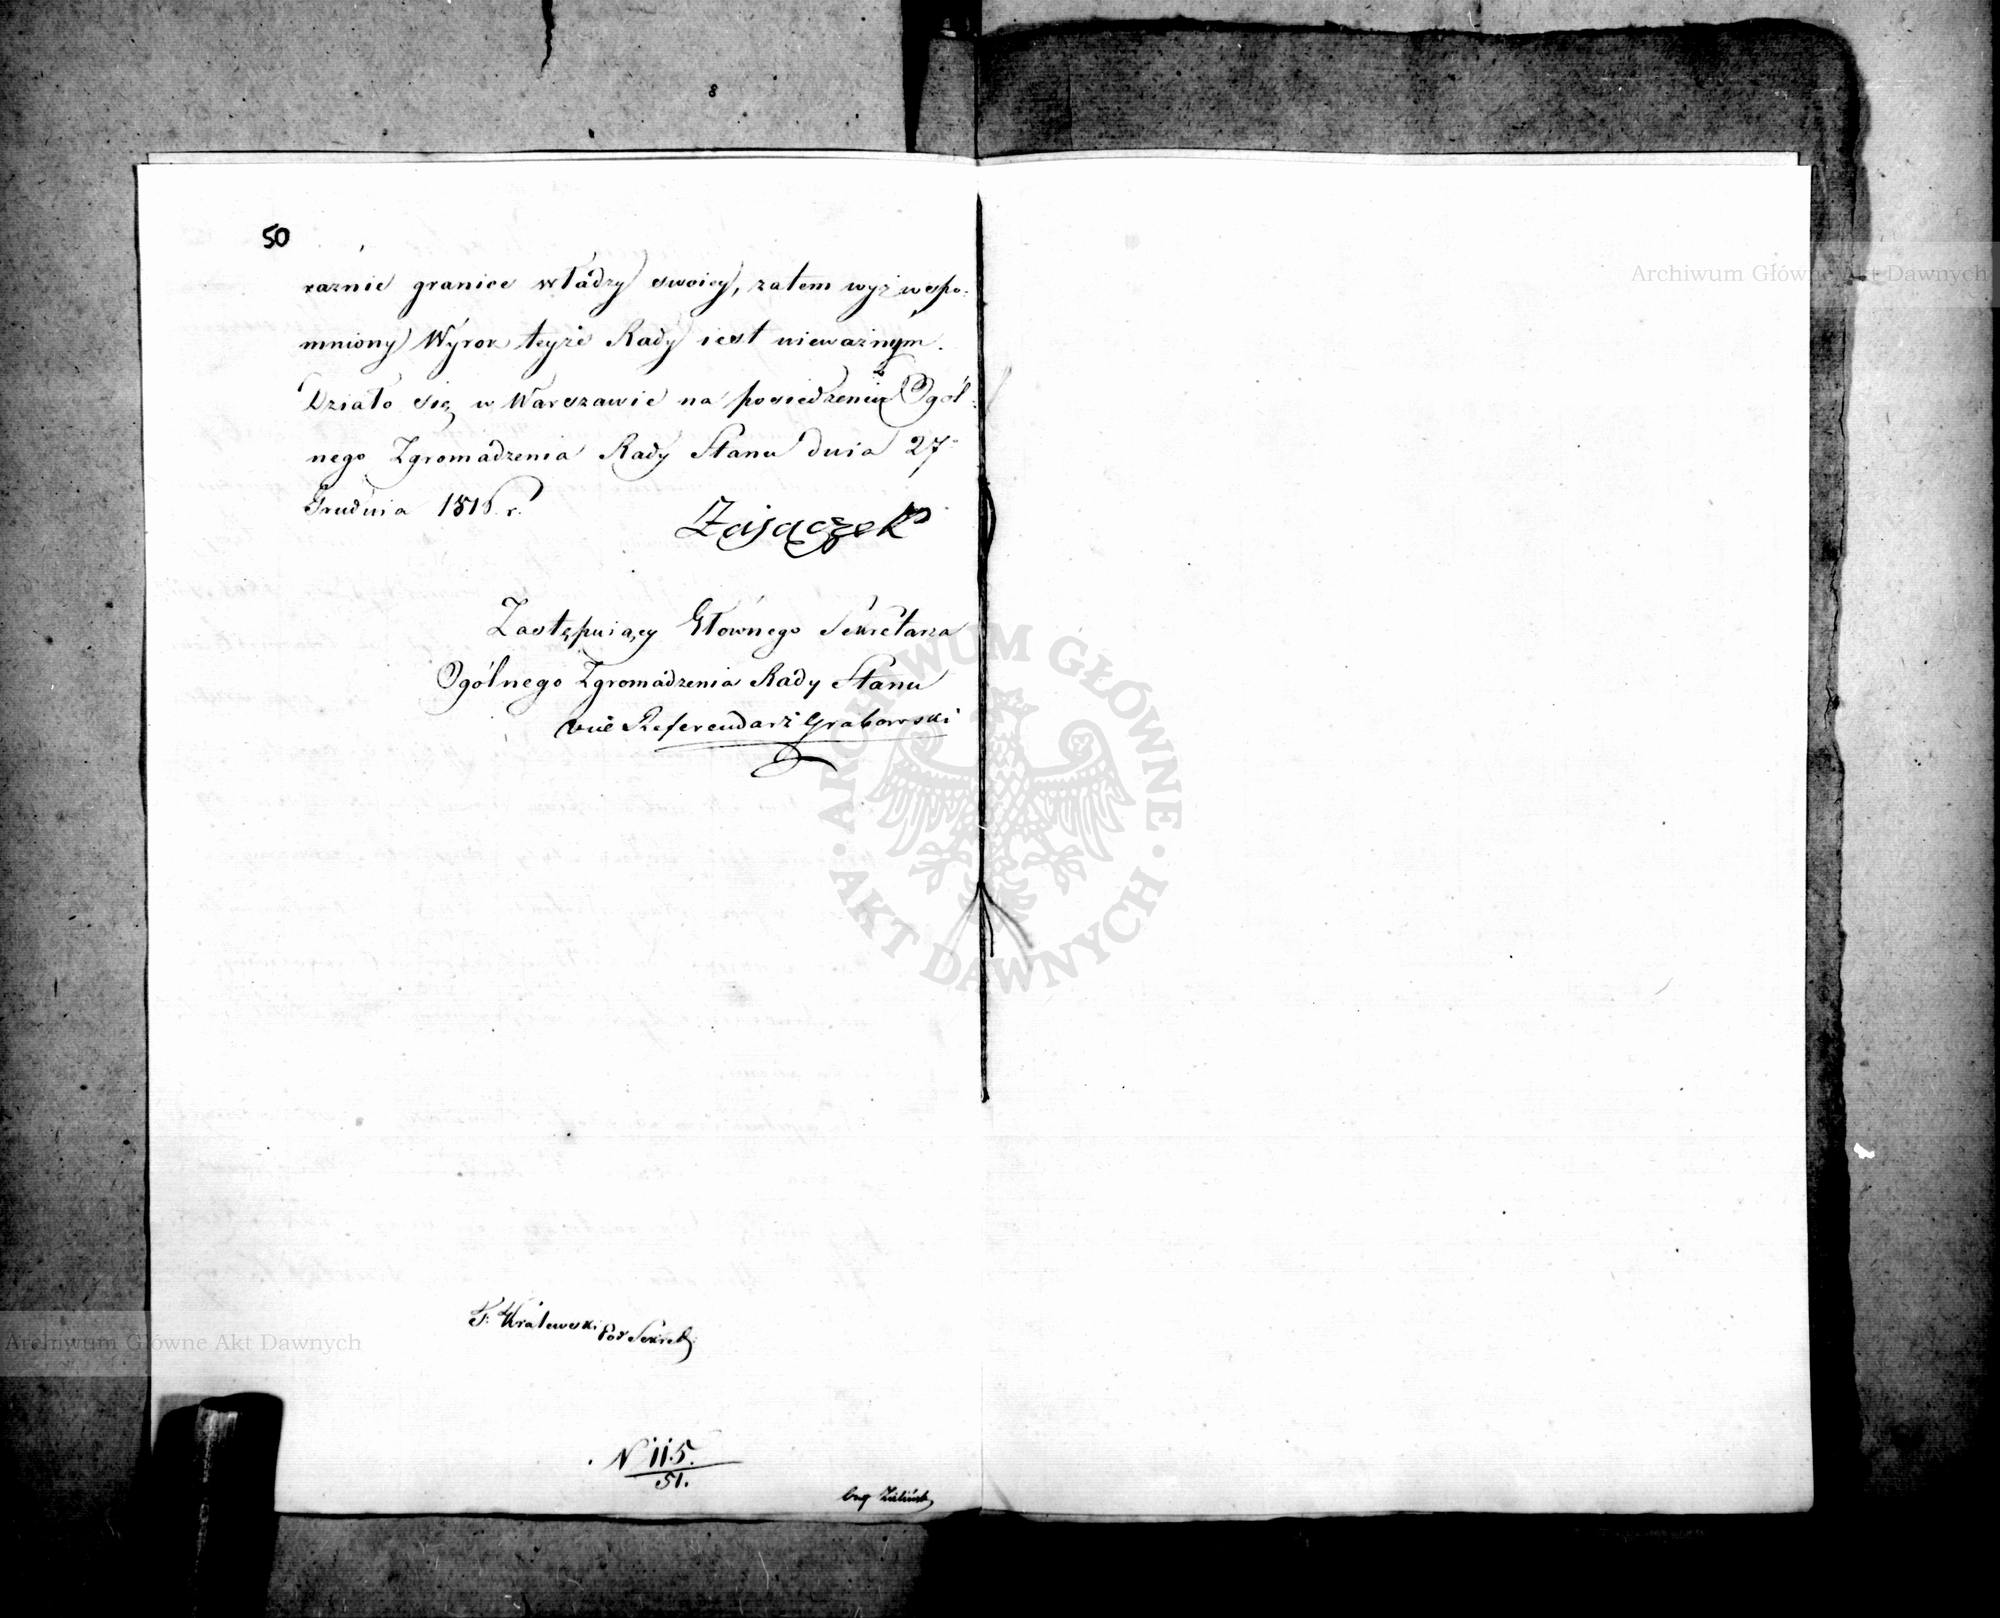 50
raźnie granice władzy swoiey, zatem wyż wspo-
mniony Wyrok teyże Rady iest nieważnym.
Działo się w Warszawie na posiedzeniu Ogól-
nego Zgromadzenia Rady Stanu dnia 27
Grudnia 1816. r.
Zajączek
Zastępuiący Głównego Sekretarza
Ogólnego Zgromadzenia Rady Stanu
vice Referendarz Grabowski
F. Królewski Pod Sekret:
N 115.
51.
Archiwum Główne Akt Dawnych
Archiwum Główne Akt Dawnych
ARCHIWUM GŁÓWNE · AKT DAWNYCH ·